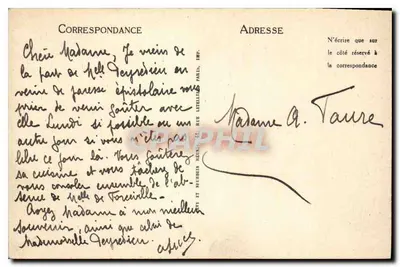 CORRESPONDANCE
ADRESSE
N'écrire que sur
le côté réservé à
la correspondance
Chère Madame, Je viens de
la part de Melle Peyredieu en
veine de paresse épistolaire vous
prier de venir goûter avec
elle Lundi si possible ou un
autre jour si vous n'êtes pas
libre ce jour là. Vous goûterez
sa cuisine et vous tâcherez de
vous consoler ensemble de l'ab-
sence de Melle de
Croyez Madame à mon meilleur
souvenir, ainsi que celui de
Mademoiselle Peyredieu.
Madame A. Faure
CARPHILA